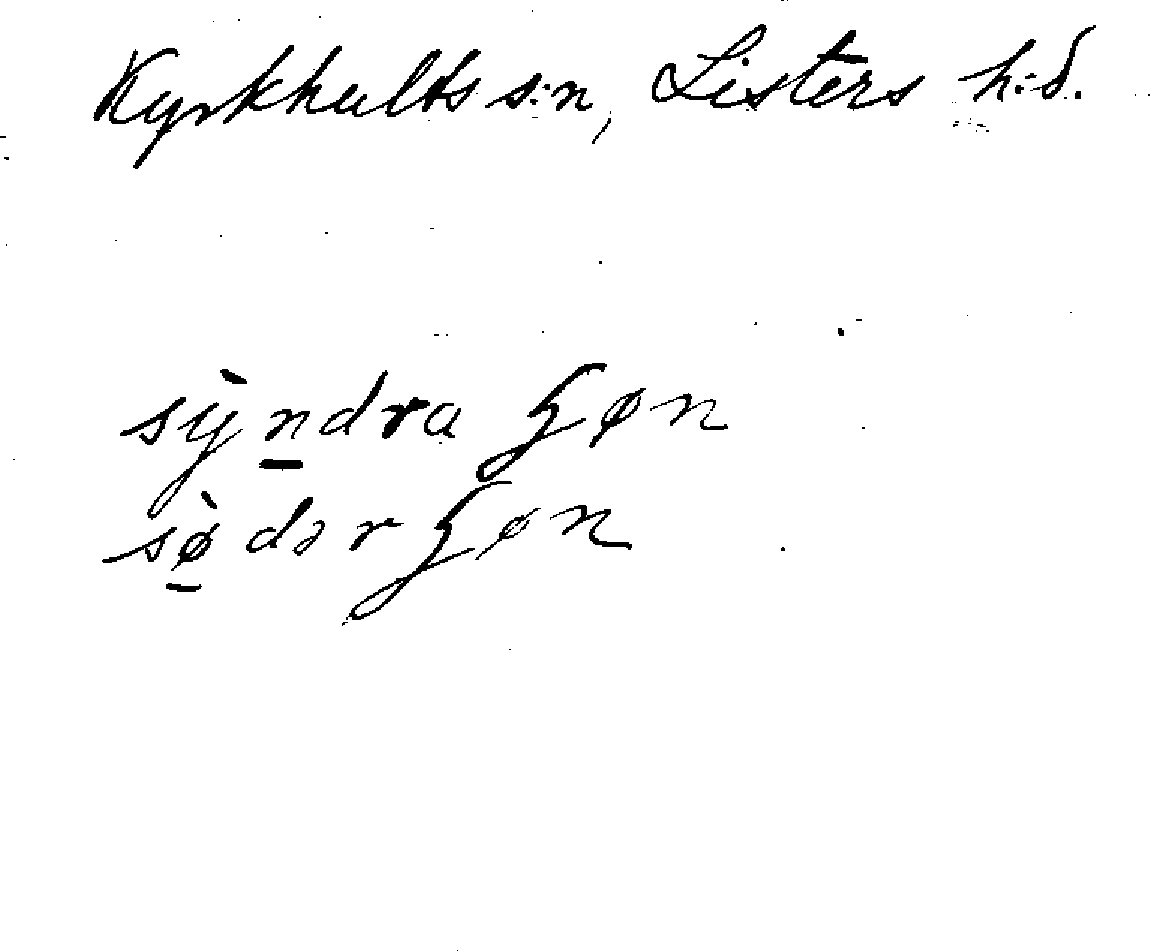 Kyrkhults s:n, Listers h:d.
sỳndra ɧøn
sø̀dərɧøn